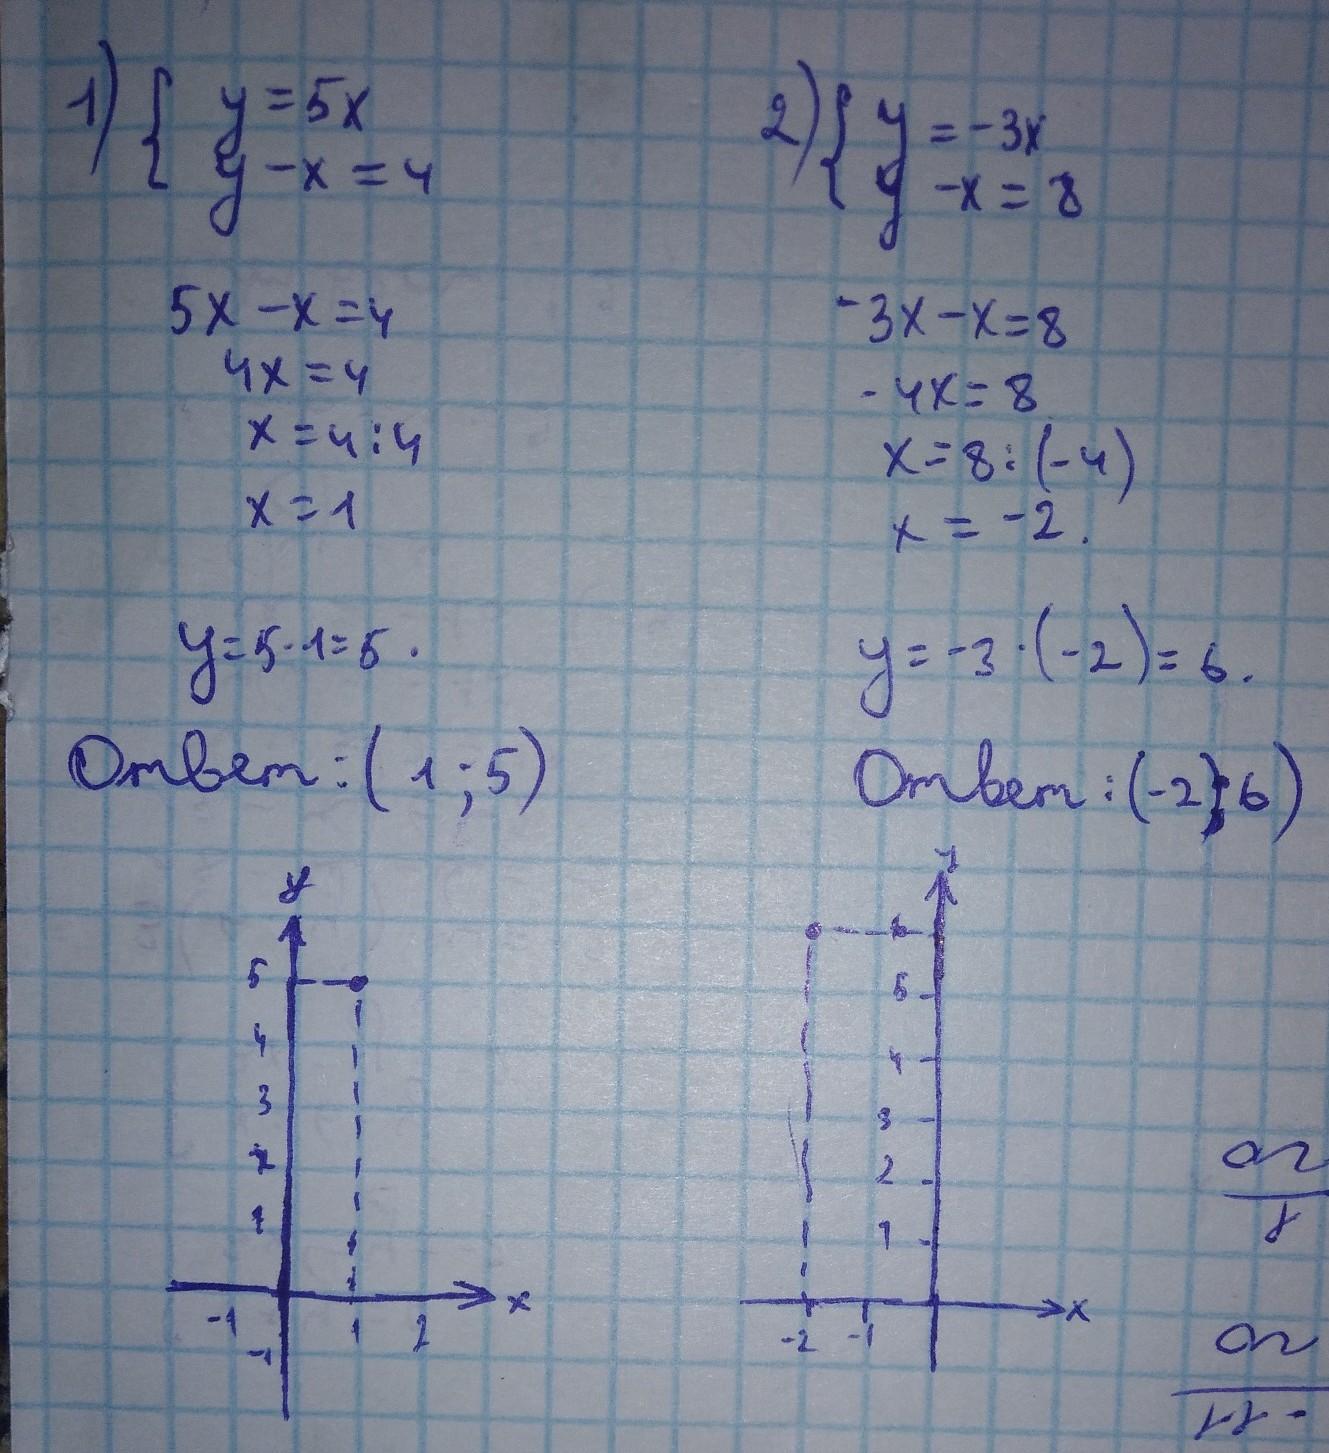 1) { y = 5x
y - x = 4
5x - x = 4
4x = 4
x = 4 : 4
x = 1
y = 5 · 1 = 5.
Ответ: (1; 5)
y
5
4
3
2
1
-1 1 2 x
-1
2) { y = -3x
y - x = 8
-3x - x = 8
-4x = 8
x = 8 : (-4)
x = -2.
y = -3 · (-2) = 6.
Ответ: (-2; 6)
y
6
5
4
3
2
1
-2 -1 x